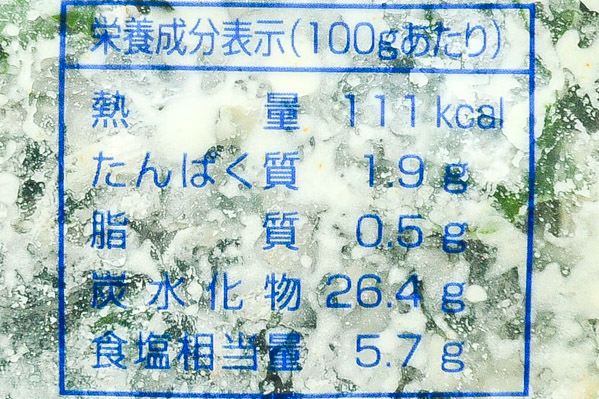 栄養成分表示(100gあたり)
熱量 111kcal
たんぱく質 1.9g
脂質 0.5g
炭水化物 26.4g
食塩相当量 5.7g